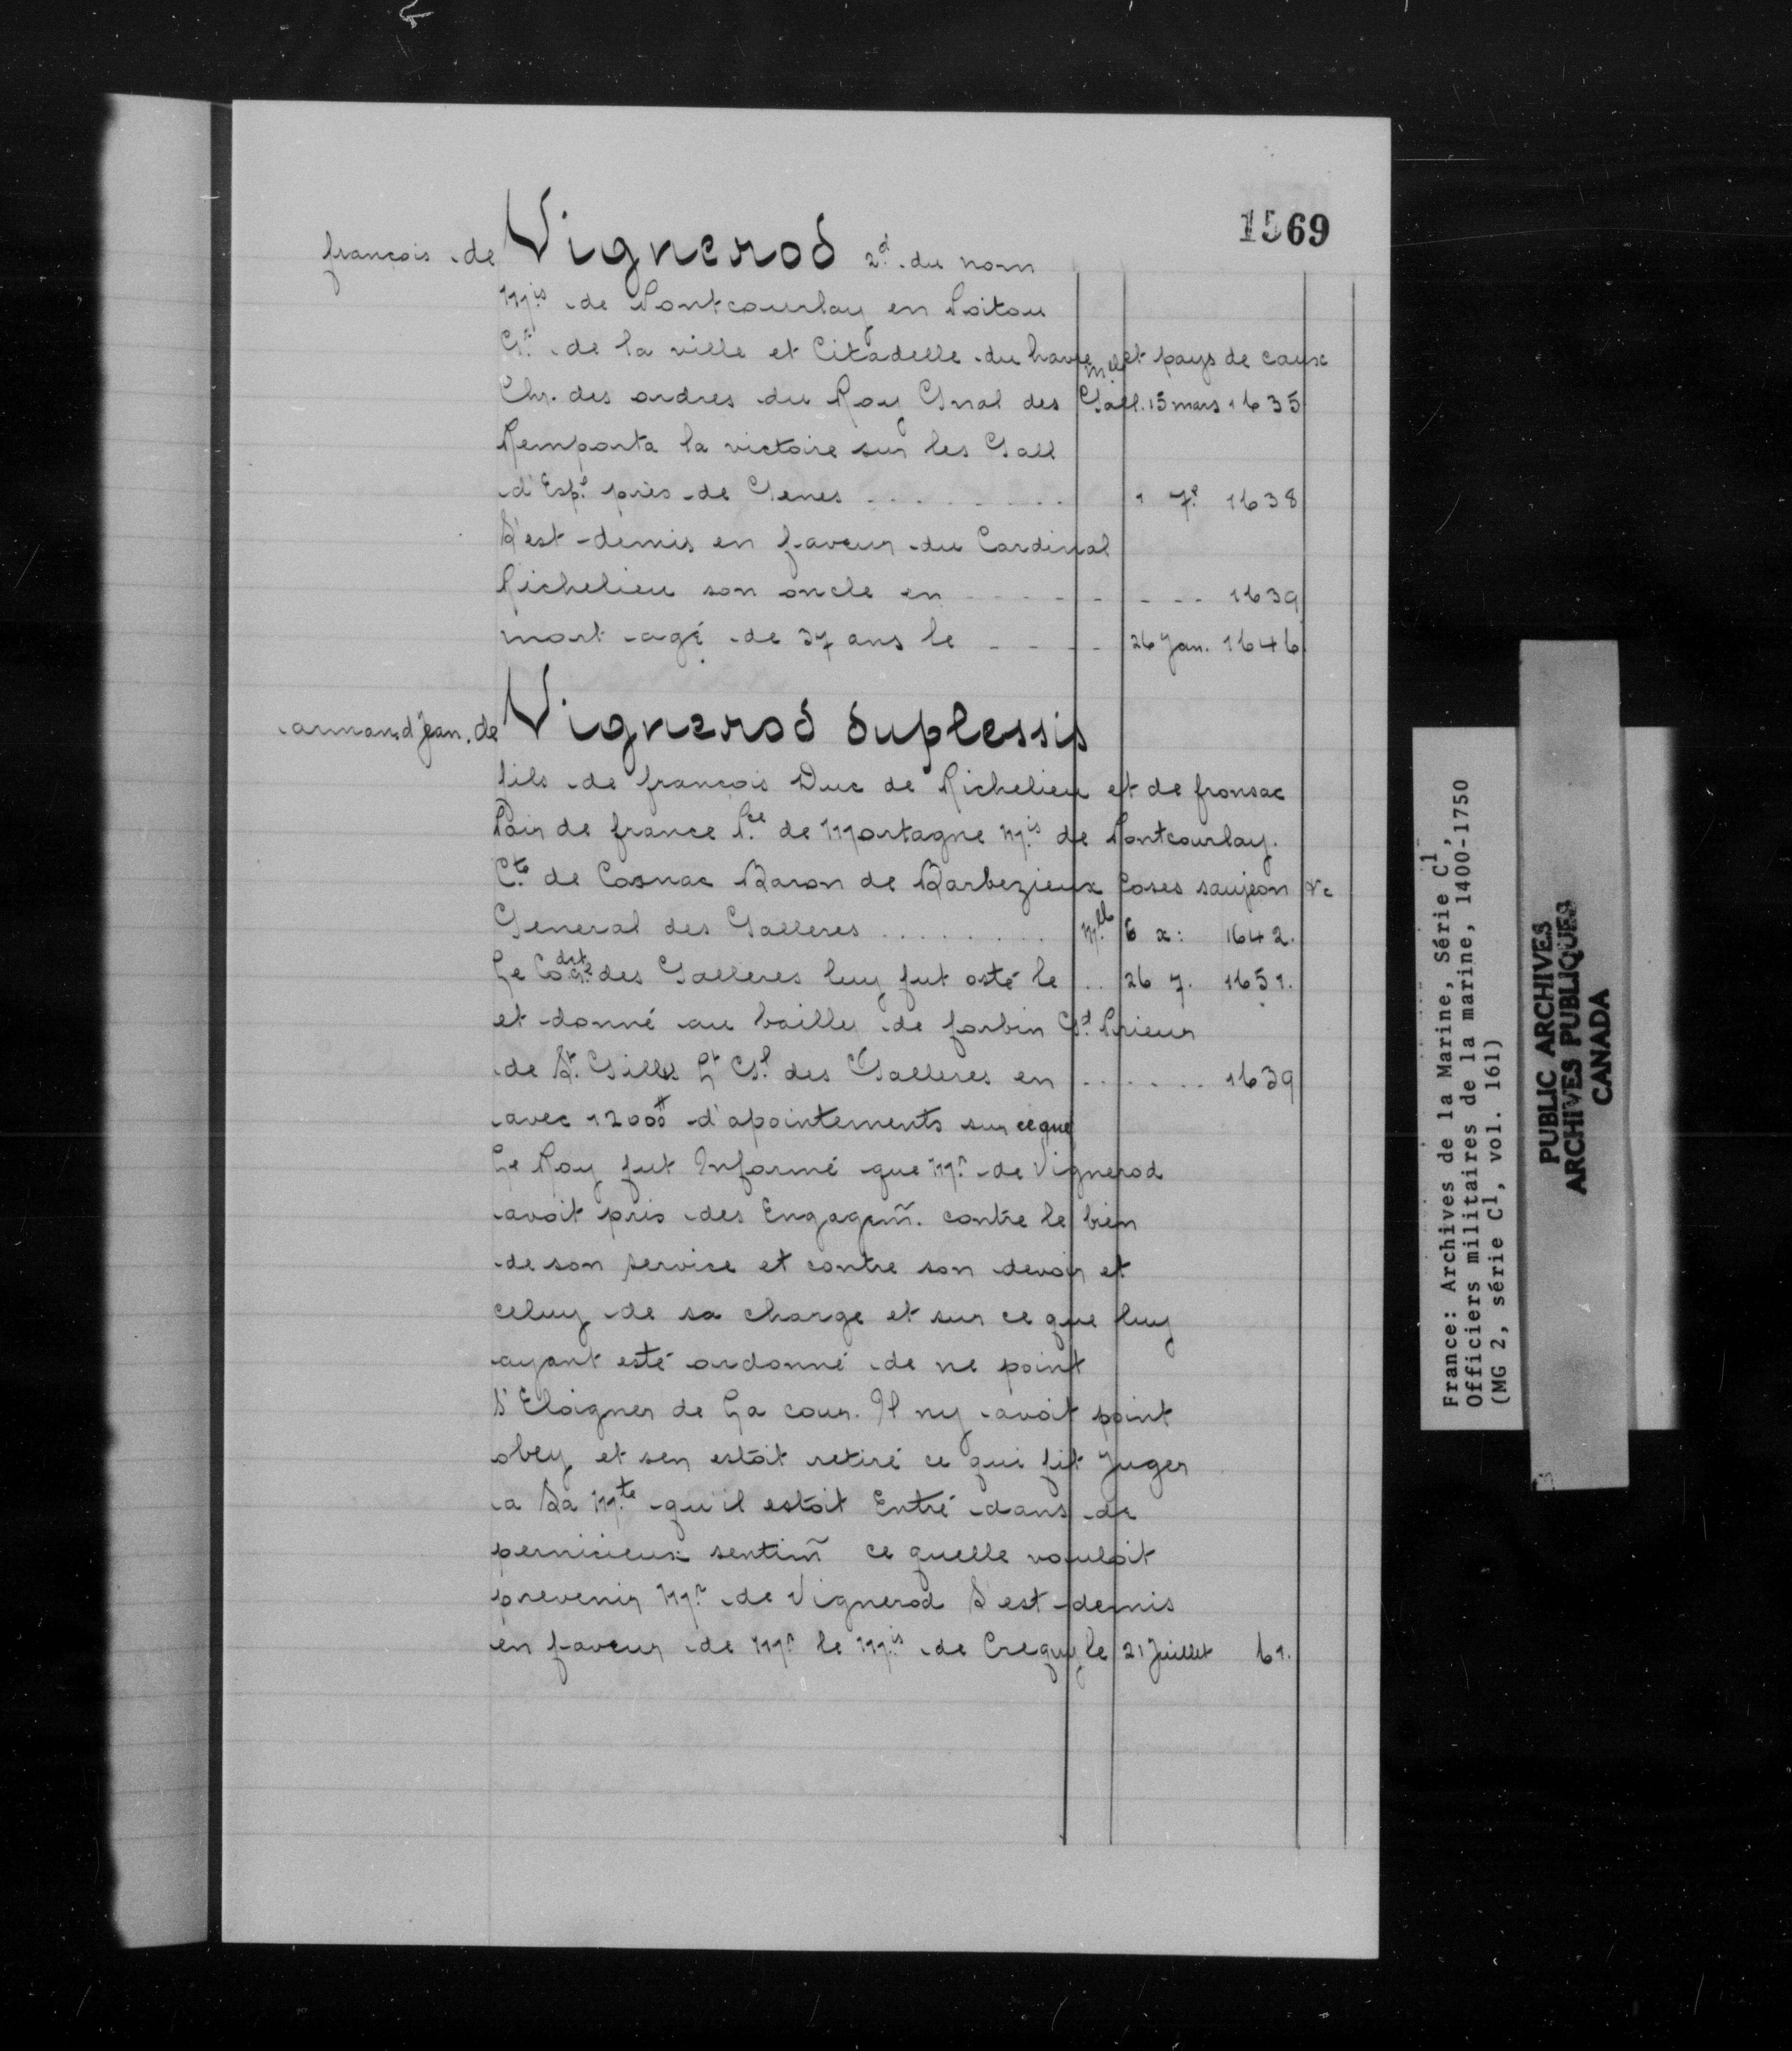 1569
françois de Vignerod 2d. du nom
Mis de Pontcourlay en Poitou
Gr. de la ville et Citadelle du havre et pays de caux
Chr. des ordres du Roy Gnal des Gall. Mlle 15 mars 1635
Remporta la victoire sur les Gall
d'Espe près de Genes . . . . . . . . 1 7e 1638
S'est demis en faveur du Cardinal
Richelieu son oncle en - - - - - - - - 1639
mort agé de 37 ans le - - - - 26 Jan. 1646
armand jean. de Vignerod duplessis
fils de françois Duc de Richelieu et de fronsac
Pair de france Pce de Mortagne Mis de Pontcourlay.
Cte de Cosnac Baron de Barbezieux Coses saujeon &c
General des Galleres . . . . . . . . . Mlle 6 x: 1642.
Le Codt des Galleres luy fut osté le . . 26 7. 1651.
et donné au bailly de forbin Gd. Prieur
de St. Gilles Lt Gl des Galleres en . . . . . . 1639
avec 12000# d'apointements sur ceque
Le Roy fut Informé que Mr. de Vignerod
avoit pris des Engagem̃. contre le bien
de son service et contre son devoir et
celuy de sa charge et sur ce que luy
ayant esté ordonné de ne point
s'Eloigner de La cour. Il ny avoit point
obey et sen estoit retiré ce qui fit Juger
a Sa Mte qu'il estoit Entré dans de
pernicieux sentim̃ ce quelle vouloit
prevenir Mr. de Vignerod S'est demis
en faveur de Mr. le Mis de Crequy le 21 Juillet 61.
France: Archives de la Marine, Série C1,
Officiers militaires de la marine, 1400-1750
(MG 2, série C1, vol. 161)
PUBLIC ARCHIVES
ARCHIVES PUBLIQUES
CANADA